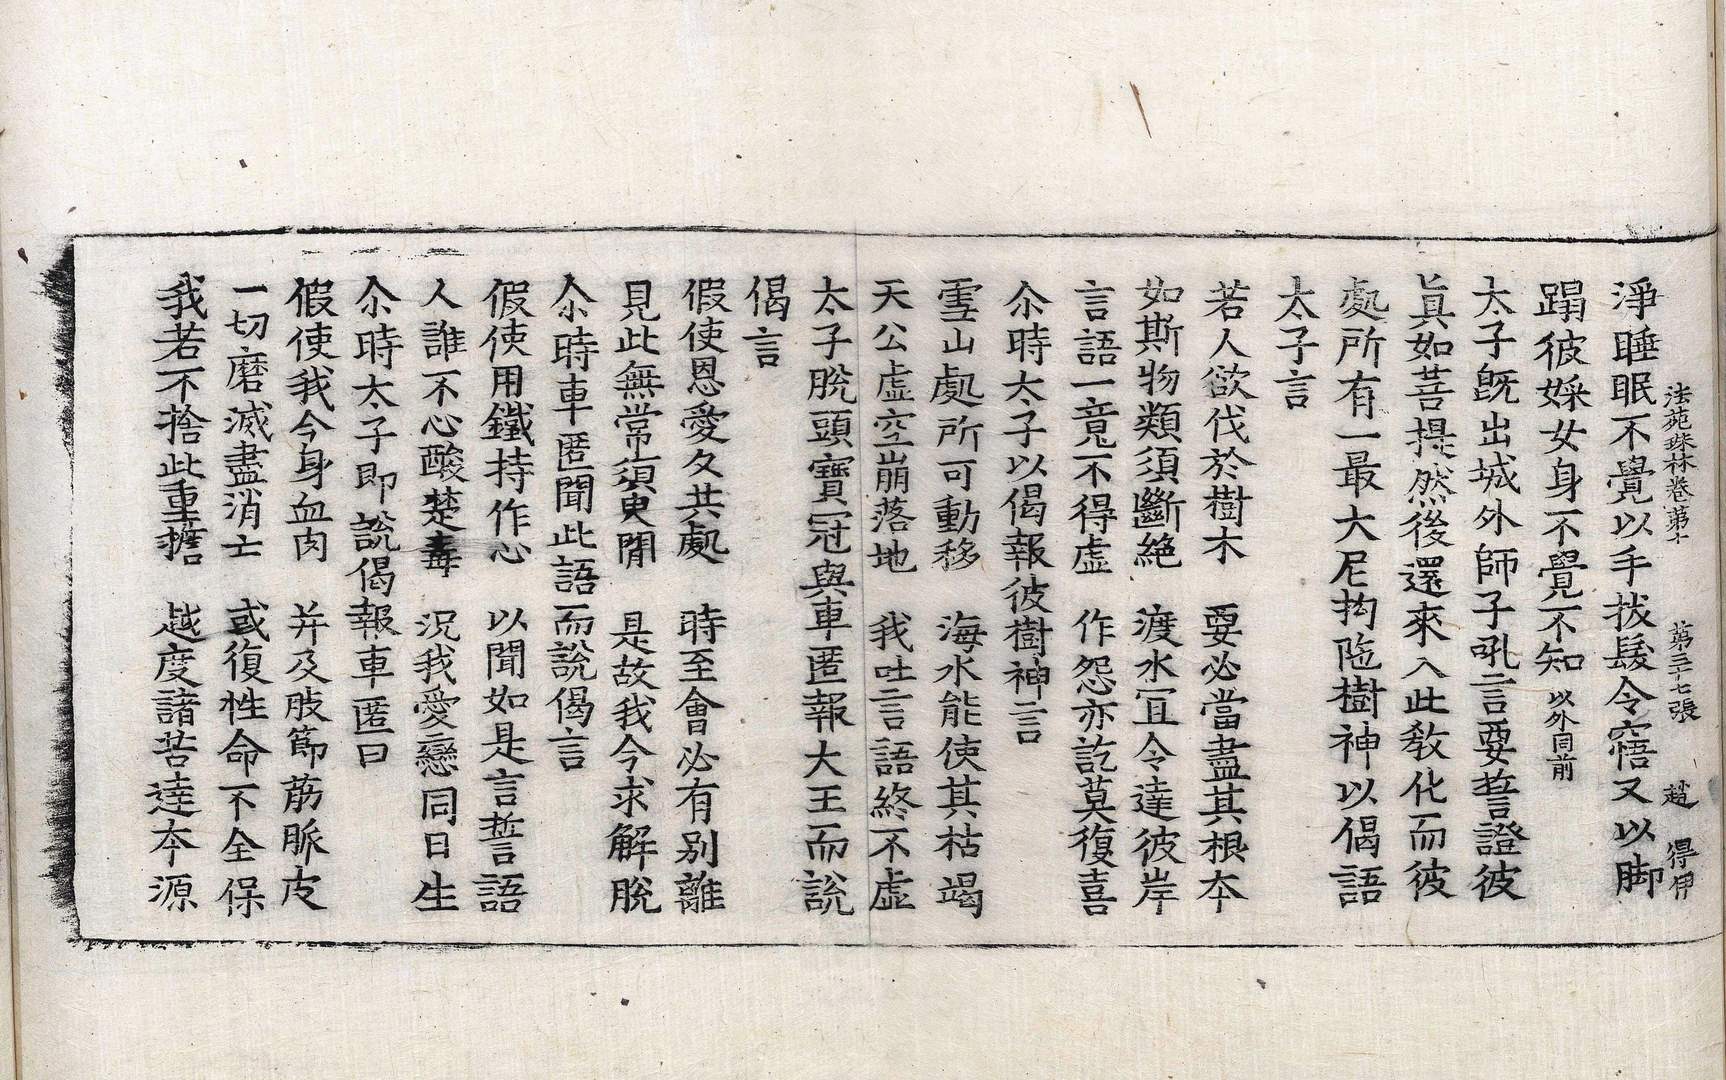 法苑珠林卷第十 第三十七張 趙 得伊
淨睡眠不覺以手拔髮令寤又以脚
蹋彼婇女身不覺不知以外同前
太子既出城外師子吼言要誓證彼
眞如菩提然後還來入此教化而彼
處所有一最大尼拘陁樹神以偈語
太子言
若人欲伐於樹木 要必當盡其根本
如斯物類須斷絕 渡水冝令達彼岸
言語一竟不得虛 作怨亦訖莫復喜
尒時太子以偈報彼樹神言
雪山處所可動移 海水能使其枯竭
天公虛空崩落地 我吐言語終不虛
太子脫頭寶冠與車匿報大王而說
偈言
假使恩愛久共處 時至會必有别離
見此無常須臾閒 是故我今求解脫
尒時車匿聞此語而說偈言
假使用鐵持作心 以聞如是言誓語
人誰不心酸楚毒 況我愛戀同日生
尒時太子即說偈報車匿曰
假使我今身血肉 并及肢節筋脈皮
一切磨滅盡消亡 或復性命不全保
我若不捨此重擔 越度諸苦達本源